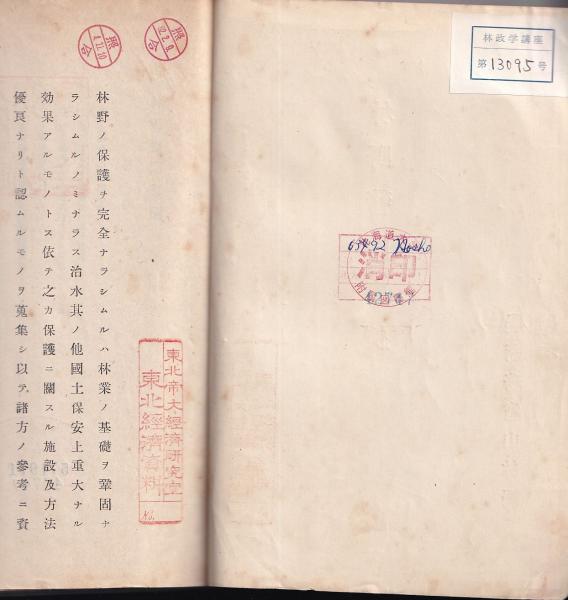 林政学講座
第13095号
消印
照合
照合
林野ノ保護ヲ完全ナラシムルハ林業ノ基礎ヲ鞏固ナ
ラシムルノミナラス治水其ノ他國土保安上重大ナル
効果アルモノトス依テ之カ保護ニ關スル施設及方法
優良ナリト認ムルモノヲ蒐集シ以テ諸方ノ參考ニ資
東北帝大經濟研究室
東北經濟資料
No.